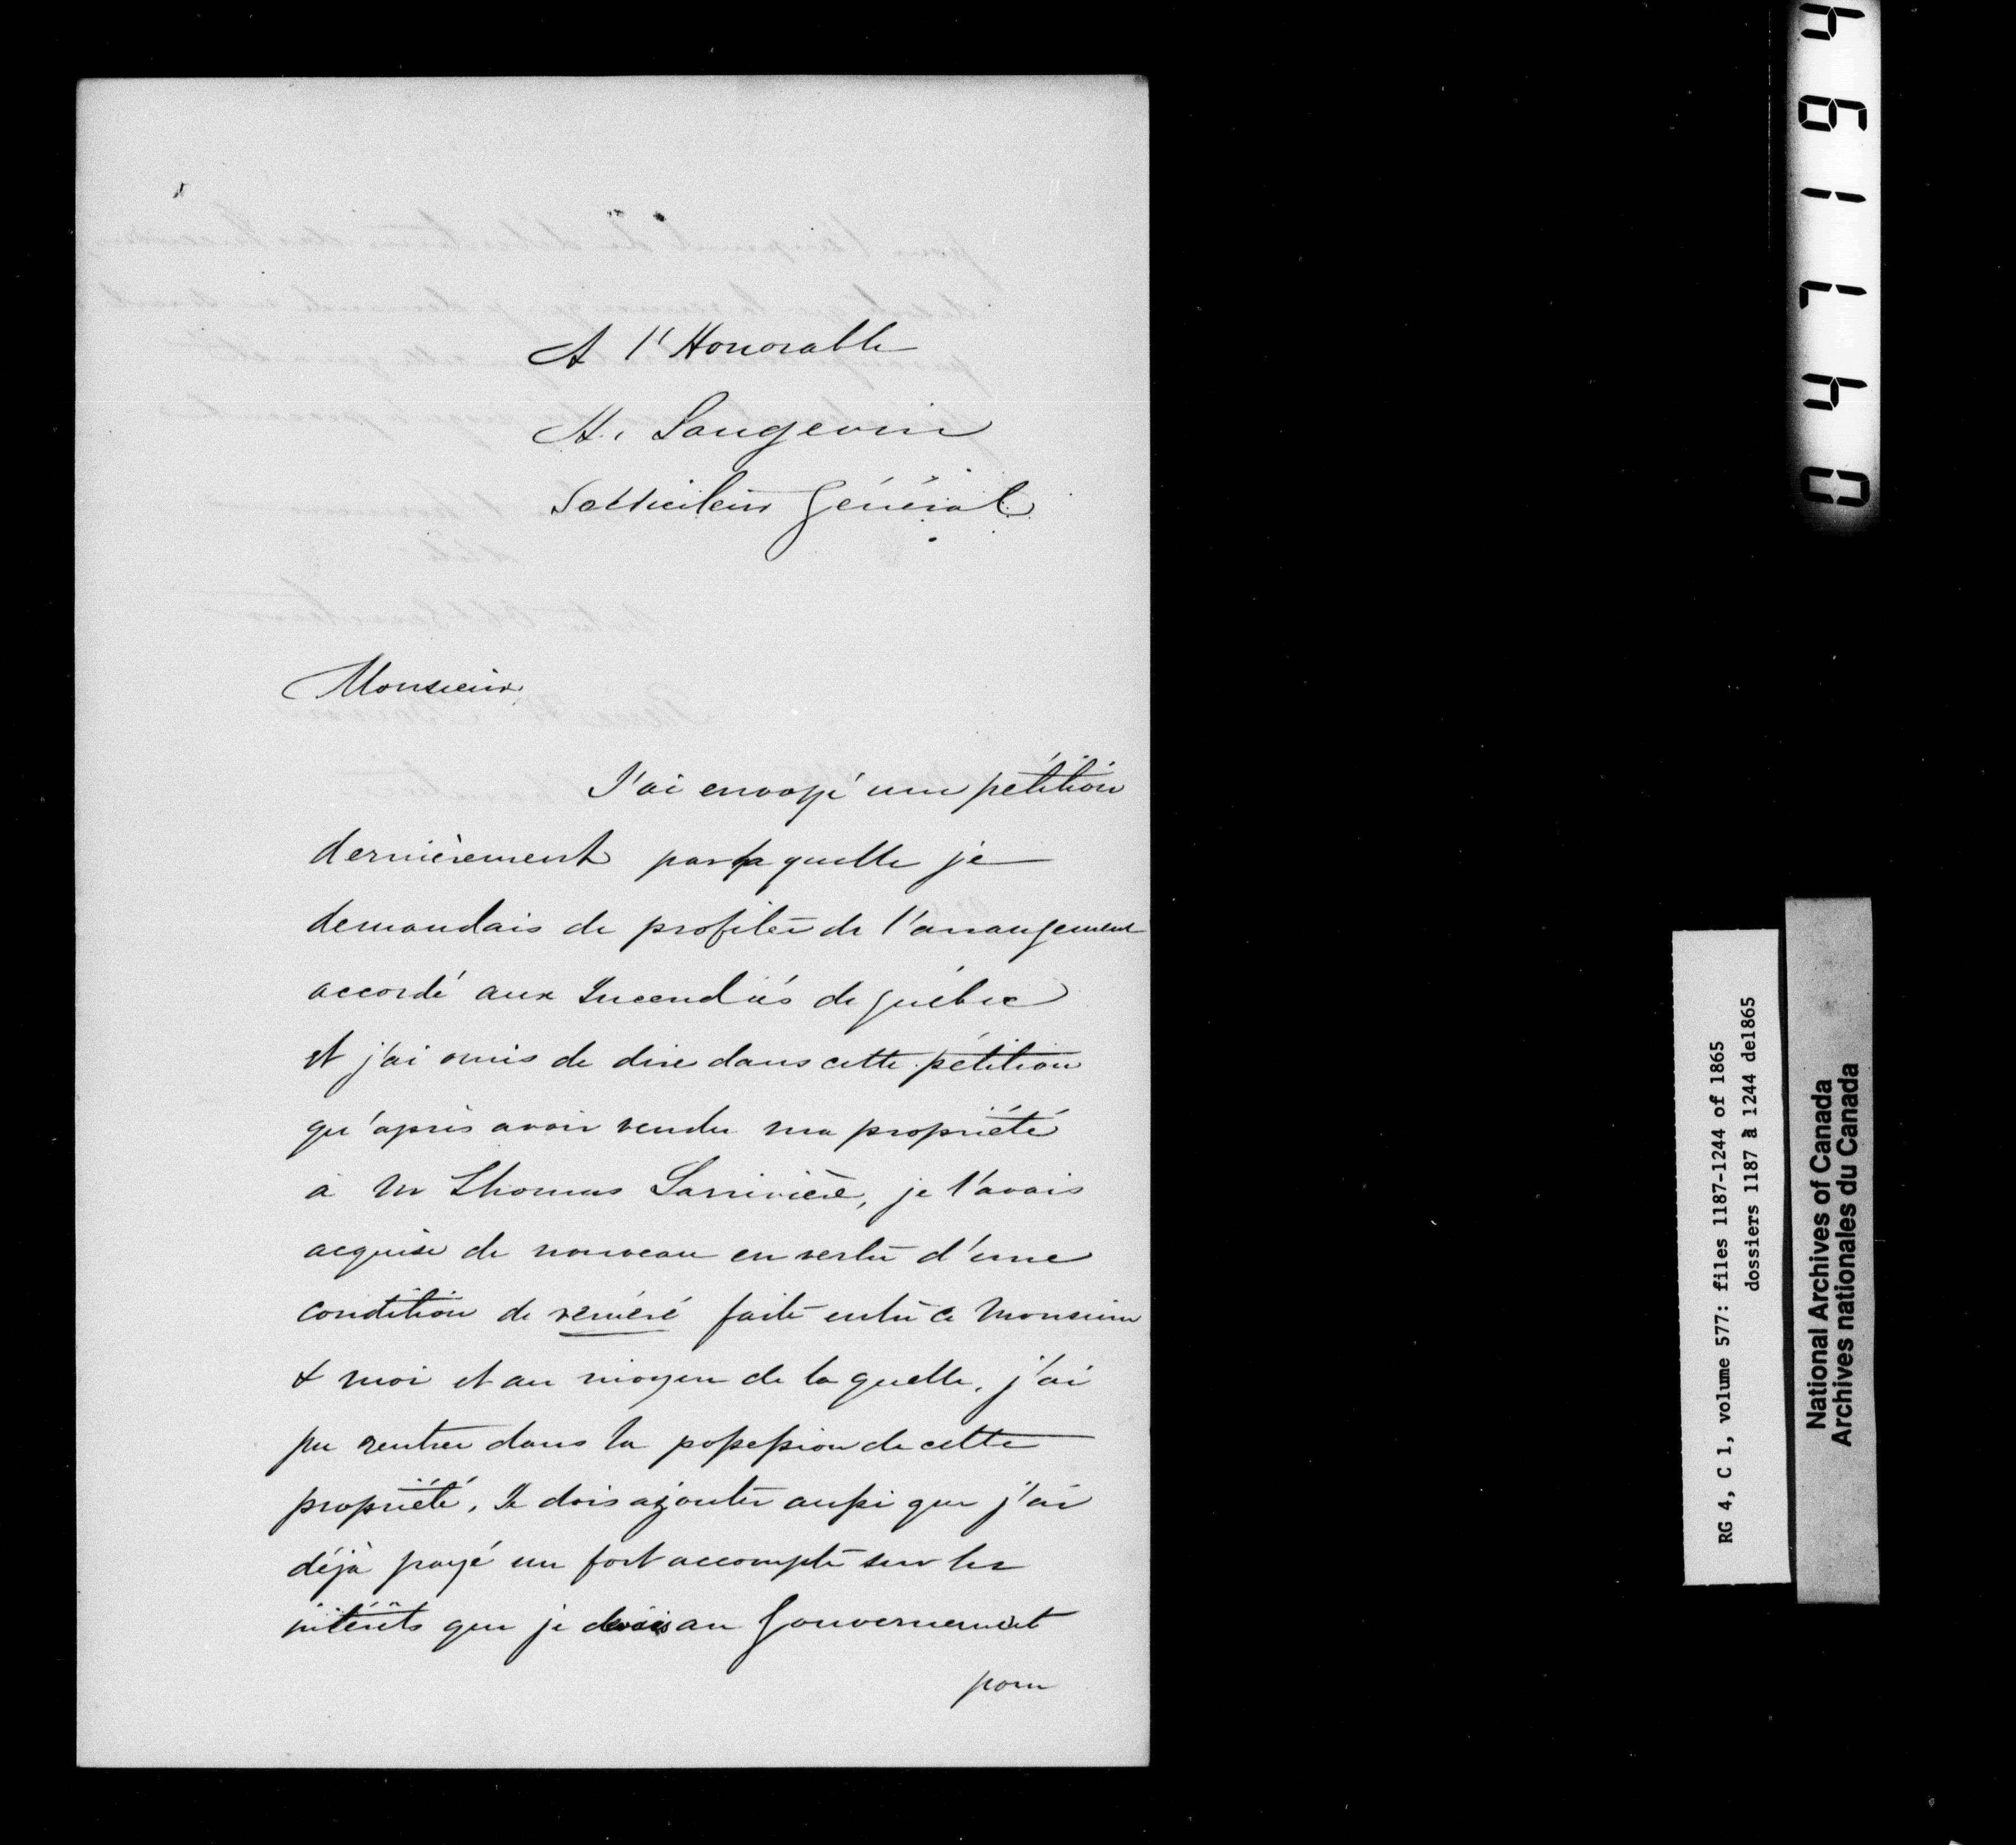 A l'Honorable
H. Langevin
Solliciteur Général
Monsieur,
J'ai envoyé une pétition
dernièrement par laquelle je
demandais de profiter de l'arrangement
accordé aux Incendiés de Québec
et j'ai omis de dire dans cette pétition
qu'après avoir vendu ma propriété
à Mr Thomas Larrivière, je l'avais
acquise de nouveau en vertu d'une
condition de reméré faite entre ce Monsieur
& moi et au moyen de laquelle, j'ai
pu rentrer dans la possession de cette
propriété. Je dois ajouter aussi que j'ai
déjà payé un fort accompte sur les
intérêts que je devais au Gouvernement
pour
047194
RG 4, C 1, volume 577: files 1187-1244 of 1865
dossiers 1187 à 1244 de1865
National Archives of Canada
Archives nationales du Canada